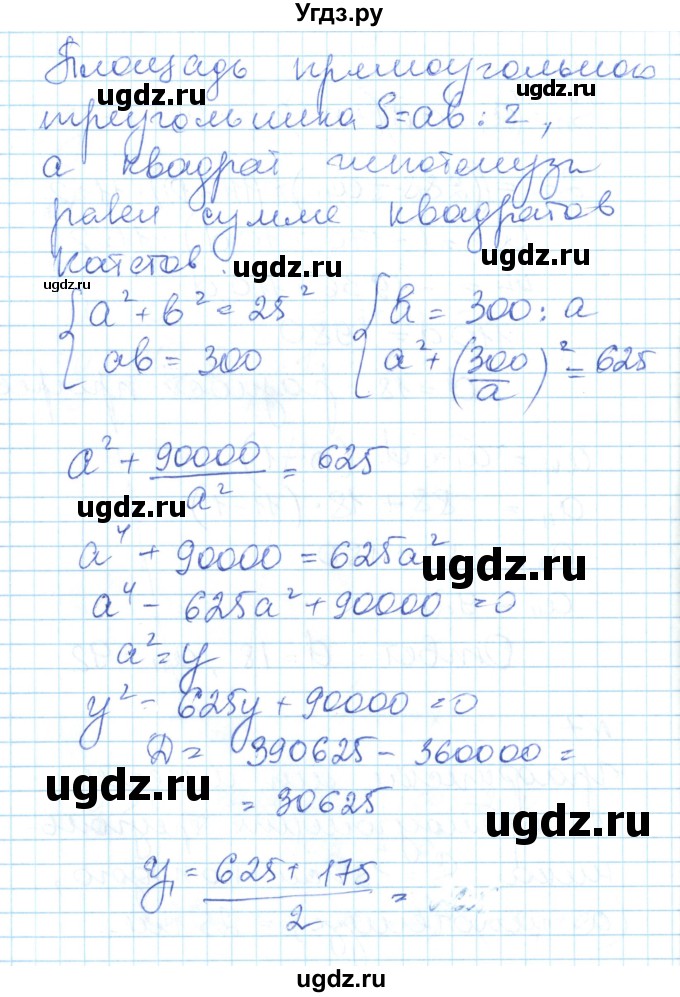 Угдз.ру
Площадь прямоугольного
ugdz.ru
ugdz.ru
треугольника S=ab:2,
а квадрат гипотенузы
равен сумме квадратов
катетов.
ugdz.ru
ugdz.ru
{ a² + b² = 25²
ab = 300
{ b = 300 : a
a² + (300/a)² = 625
a² + 90000/a² = 625
ugdz.ru
ugdz.ru
a⁴ + 90000 = 625a²
ugdz.ru
a⁴ - 625a² + 90000 = 0
a² = y
y² - 625y + 90000 = 0
D = 390625 - 360000 =
ugdz.ru
= 30625
ugdz.ru
y₁ = (625 + 175)/2 =
ugdz.ru